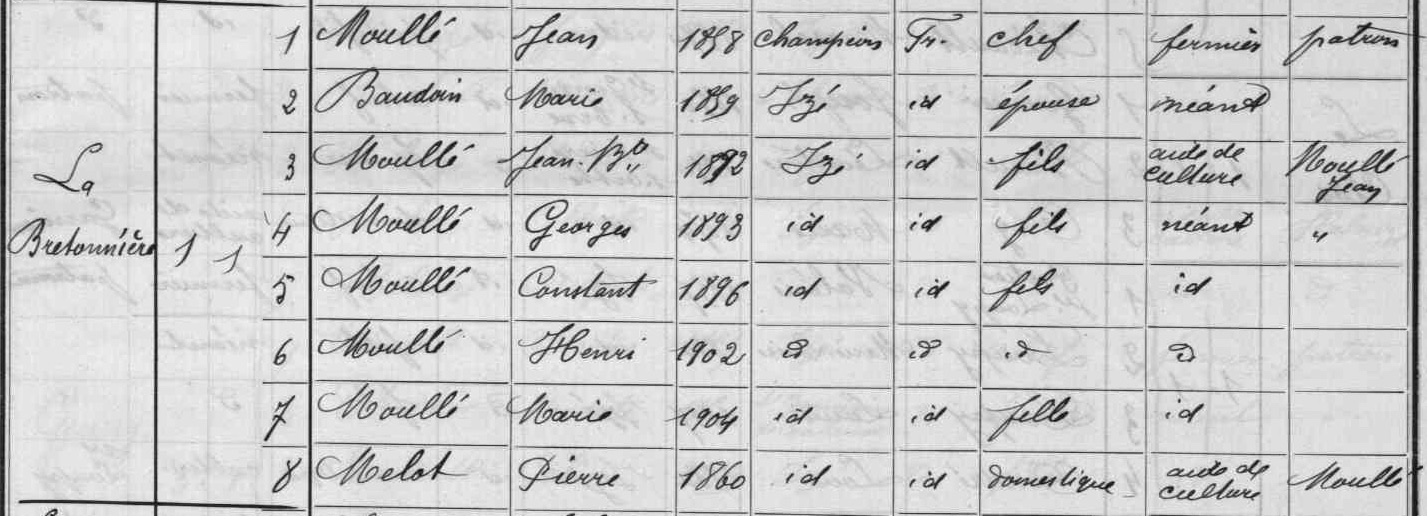 1 Moullé Jean 1858 Champeaux Fr. chef fermier patron
2 Baudoin Marie 1859 Izé id épouse néant
3 Moullé Jean Bte 1892 Izé id fils aide de culture Moullé Jean
La Bretonnière 1 1
4 Moullé Georges 1893 id id fils néant "
5 Moullé Constant 1896 id id fils id
6 Moullé Henri 1902 id id id id
7 Moullé Marie 1904 id id fille id
8 Melot Pierre 1860 id id domestique aide de culture Moullé